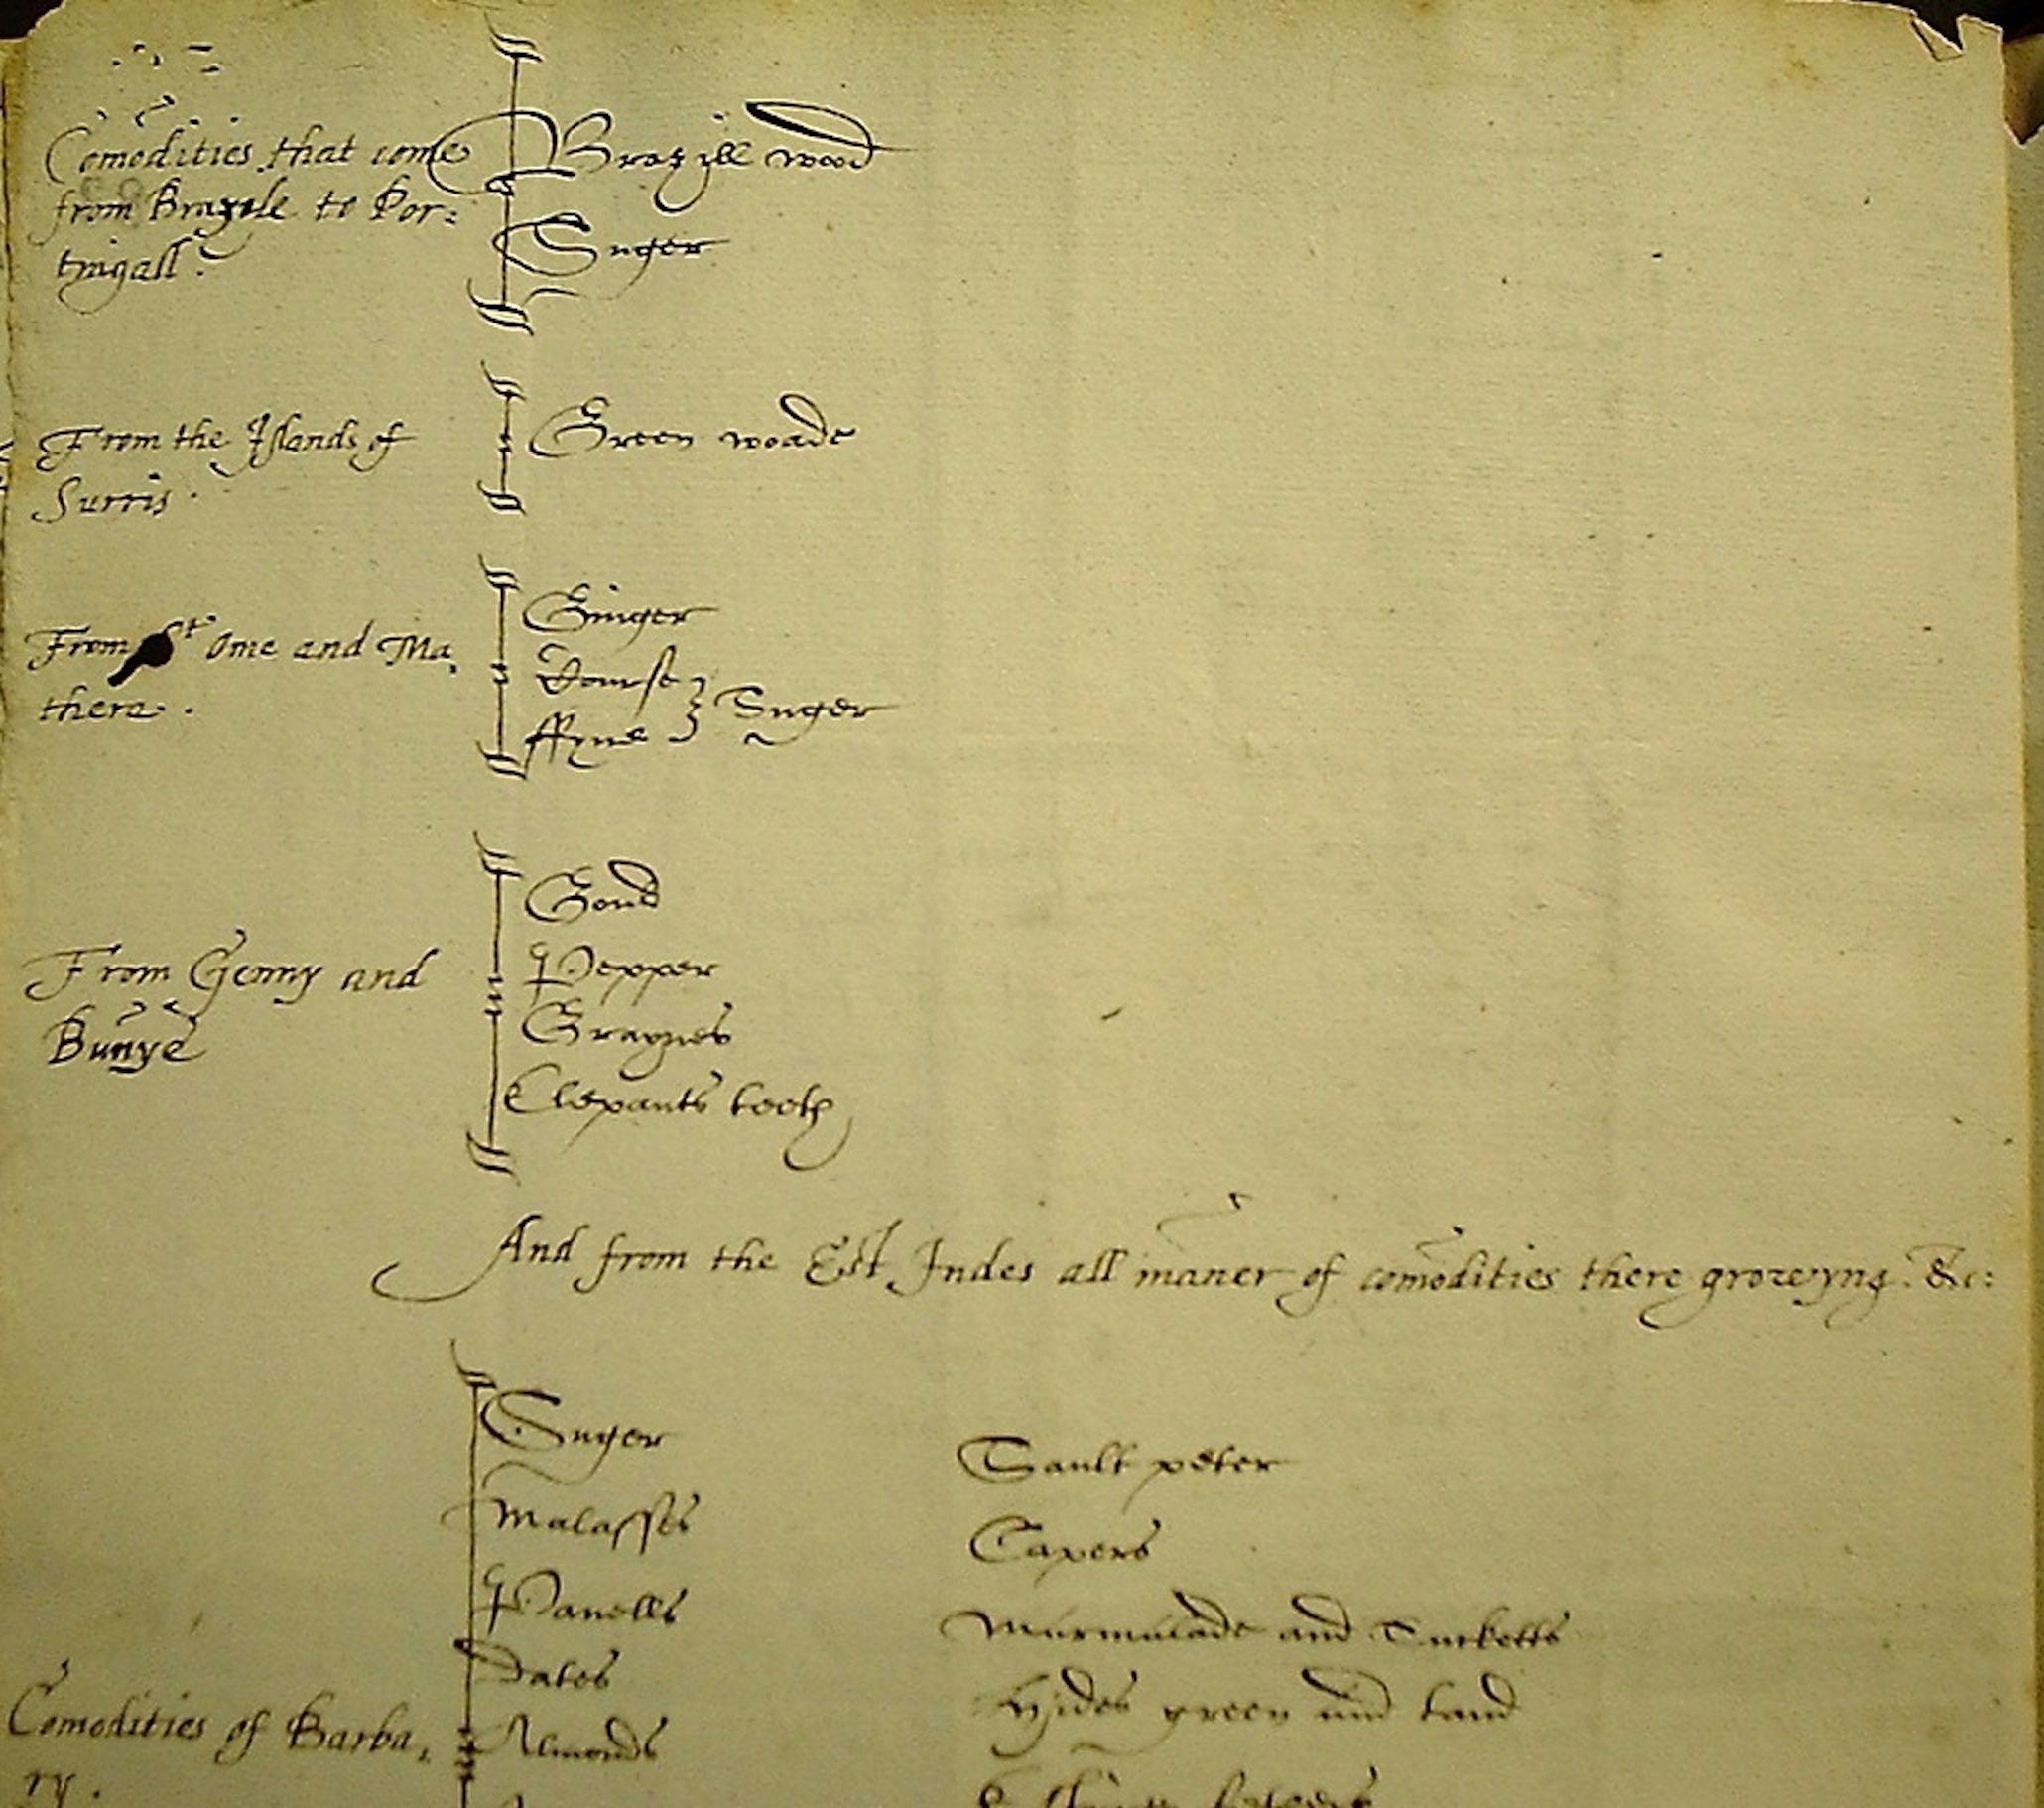 Comodities that come
from Brazele to Por:
tingall.
Brazyll wood
Suger
From the Islands of
Surris.
Green woade
From St Ome and Ma,
thera.
Ginger
Course
ffyne
Suger
From Genny and
Bunye
Gould
Pepper
Graynes
Elepants teeth
And from the Est Indes all maner of comodities there growyng. &c:
Comodities of Barba,
ry.
Suger
Malasses
Panells
Dates
Almonds
Sault peter
Capers
Marmalade and Sucketts
Hides green and tand